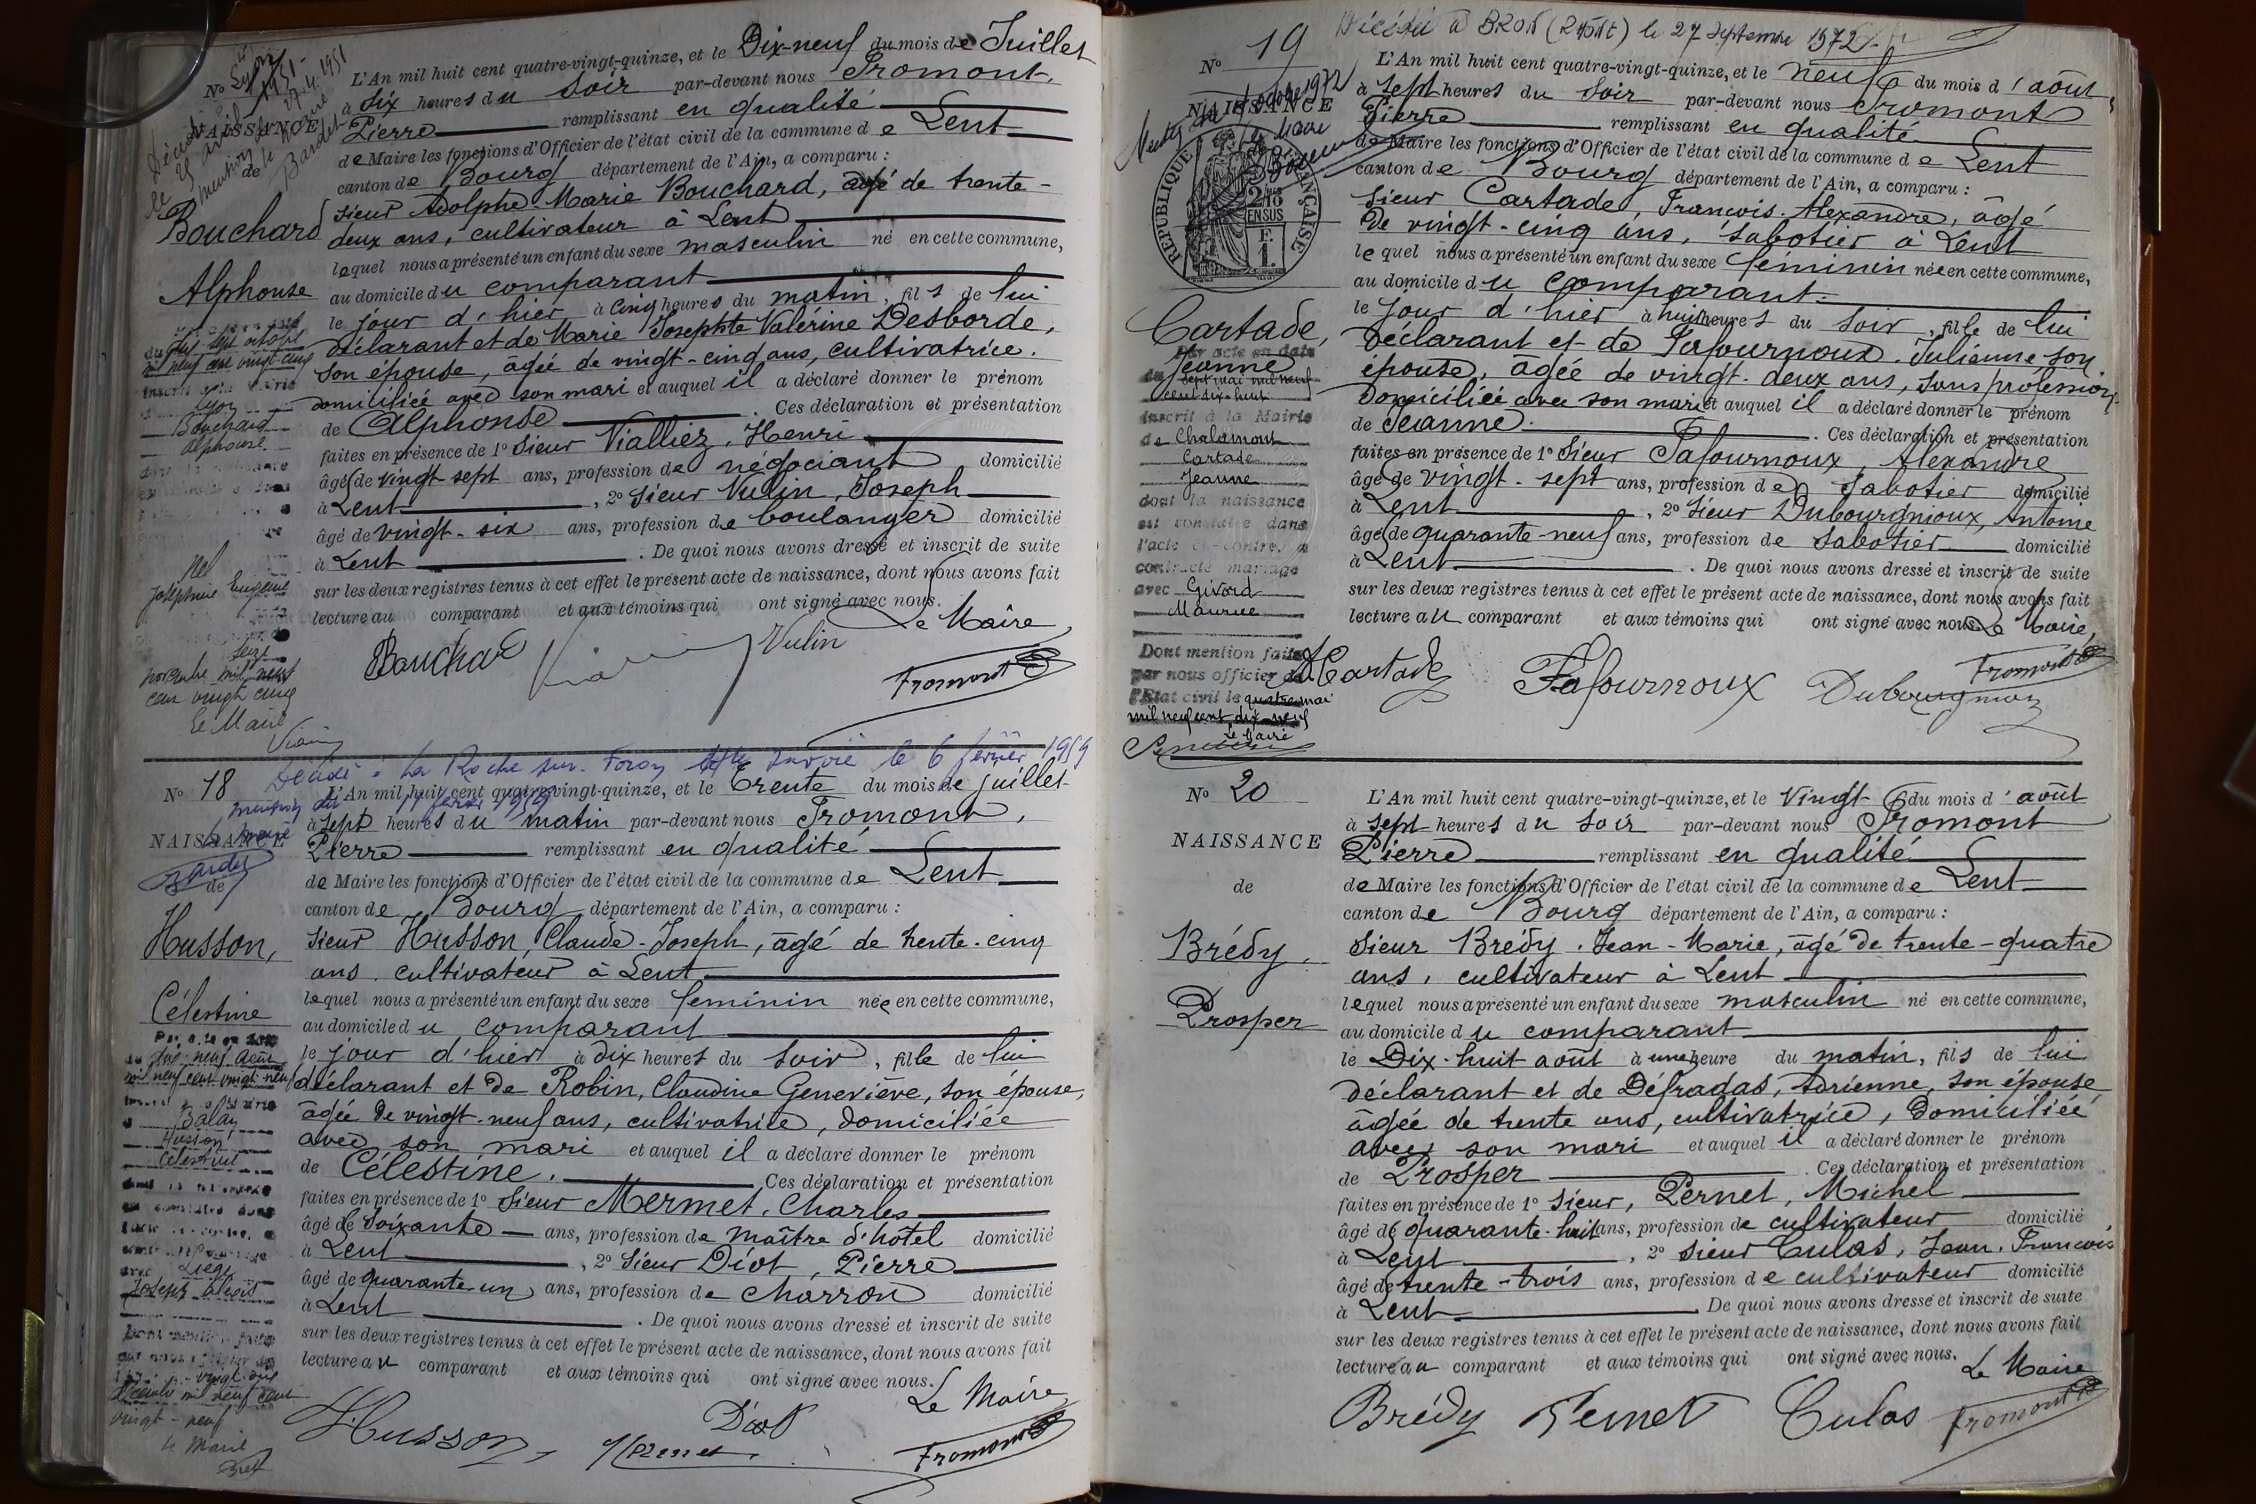 L'An mil huit cent quatre-vingt-quinze, et le Dix-neuf du mois de Juillet
à six heures du soir par-devant nous Fromont,
Pierre remplissant en qualité
de Maire les fonctions d'Officier de l'état civil de la commune de Lent
canton de Bourg département de l'Ain, a comparu :
sieur Adolphe-Marie Bouchard, âgé de trente-
deux ans, cultivateur à Lent
lequel nous a présenté un enfant du sexe masculin né en cette commune,
au domicile du comparant
le jour d'hier à cinq heures du matin, fils de lui
déclarant et de Marie Josephte Valérine Desborde,
son épouse, âgée de vingt-cinq ans, cultivatrice.
domiciliée avec son mari et auquel il a déclaré donner le prénom
de Alphonse. Ces déclaration et présentation
faites en présence de 1° sieur Vialliez, Henri
âgé de vingt sept ans, profession de négociant domicilié
à Lent, 2° sieur Vulin, Joseph
âgé de vingt-six ans, profession de boulanger domicilié
à Lent. De quoi nous avons dressé et inscrit de suite
sur les deux registres tenus à cet effet le présent acte de naissance, dont nous avons fait
lecture au comparant et aux témoins qui ont signé avec nous.
Le Maire
Bouchard Vulin Fromont
No
NAISSANCE
de
Bouchard
Alphonse
Lyon
Bouchard
Alphonse
Joséphine Eugénie
seize
novembre mil neuf
cent vingt cinq
Le Maire
Décédé à La Roche sur Foron Hte Savoie le 6 février 1959
No 18
NAISSANCE
de
Husson,
Célestine
dix-neuf août
mil neuf cent vingt-neuf
Balan
Husson
Célestine
avec Liège
Joseph Alexis
Dont mention faite
par nous officier de
vingt un
Décembre mil neuf cent
vingt-neuf
le Maire
L'An mil huit cent quatre-vingt-quinze, et le Trente du mois de juillet
à sept heures du matin par-devant nous Fromont,
Pierre remplissant en qualité
de Maire les fonctions d'Officier de l'état civil de la commune de Lent
canton de Bourg département de l'Ain, a comparu :
sieur Husson, Claude-Joseph, âgé de trente-cinq
ans, cultivateur à Lent
lequel nous a présenté un enfant du sexe féminin née en cette commune,
au domicile du comparant
le jour d'hier à dix heures du soir, fille de lui
déclarant et de Robin, Claudine Geneviève, son épouse,
âgée de vingt-neuf ans, cultivatrice, domiciliée
avec son mari et auquel il a déclaré donner le prénom
de Célestine. Ces déclaration et présentation
faites en présence de 1° sieur Mermet, Charles
âgé de soixante ans, profession de maître d'hôtel domicilié
à Lent, 2° sieur Diot, Pierre
âgé de quarante-un ans, profession de charron domicilié
à Lent. De quoi nous avons dressé et inscrit de suite
sur les deux registres tenus à cet effet le présent acte de naissance, dont nous avons fait
lecture au comparant et aux témoins qui ont signé avec nous.
Le Maire
Husson Mermet Diot Fromont
Décédée à BRON (Rhône) le 27 Septembre 1972
No 19
NAISSANCE
RÉPUBLIQUE FRANÇAISE
2/10 EN SUS
F. 1.
Cartade,
Jeanne
Par acte en date
du sept mai mil neuf
cent dix-huit
inscrit à la Mairie
de Chalamont
Cartade
Jeanne
dont la naissance
est constatée dans
l'acte ci-contre, a
contracté mariage
avec Givord
Maurice
Dont mention faite
par nous officier de
l'Etat civil le quatre mai
mil neuf cent dix-neuf
Le Maire
L'An mil huit cent quatre-vingt-quinze, et le neuf du mois d'août,
à sept heures du soir par-devant nous Fromont
Pierre remplissant en qualité
de Maire les fonctions d'Officier de l'état civil de la commune de Lent
canton de Bourg département de l'Ain, a comparu :
sieur Cartade, François-Alexandre, âgé
de vingt-cinq ans, sabotier à Lent
lequel nous a présenté un enfant du sexe féminin née en cette commune,
au domicile du comparant
le jour d'hier à huit heures du soir, fille de lui
déclarant et de Lafournoux Julienne son
épouse, âgée de vingt-deux ans, sans profession,
domiciliée avec son mari et auquel il a déclaré donner le prénom
de Jeanne. Ces déclaration et présentation
faites en présence de 1° sieur Lafournoux, Alexandre
âgé de vingt-sept ans, profession de sabotier domicilié
à Lent, 2° sieur Dubourgnioux, Antoine
âgé de quarante-neuf ans, profession de sabotier domicilié
à Lent. De quoi nous avons dressé et inscrit de suite
sur les deux registres tenus à cet effet le présent acte de naissance, dont nous avons fait
lecture au comparant et aux témoins qui ont signé avec nous. Le Maire,
Cartade Lafournoux Fromont
No 20
NAISSANCE
de
Brédy,
Prosper
L'An mil huit cent quatre-vingt-quinze, et le Vingt du mois d'août
à sept heures du soir par-devant nous Fromont
Pierre remplissant en qualité
de Maire les fonctions d'Officier de l'état civil de la commune de Lent
canton de Bourg département de l'Ain, a comparu :
sieur Brédy, Jean-Marie, âgé de trente-quatre
ans, cultivateur à Lent
lequel nous a présenté un enfant du sexe masculin né en cette commune,
au domicile du comparant
le Dix-huit août à une heure du matin, fils de lui
déclarant et de Défradas, Adrienne, son épouse
âgée de trente ans, cultivatrice, domiciliée
avec son mari et auquel il a déclaré donner le prénom
de Prosper. Ces déclaration et présentation
faites en présence de 1° sieur, Pernet, Michel
âgé de quarante-huit ans, profession de cultivateur domicilié
à Lent, 2° sieur Culas, Jean-François
âgé de trente-trois ans, profession de cultivateur domicilié
à Lent. De quoi nous avons dressé et inscrit de suite
sur les deux registres tenus à cet effet le présent acte de naissance, dont nous avons fait
lecture au comparant et aux témoins qui ont signé avec nous.
Le Maire
Brédy Pernet Culas Fromont